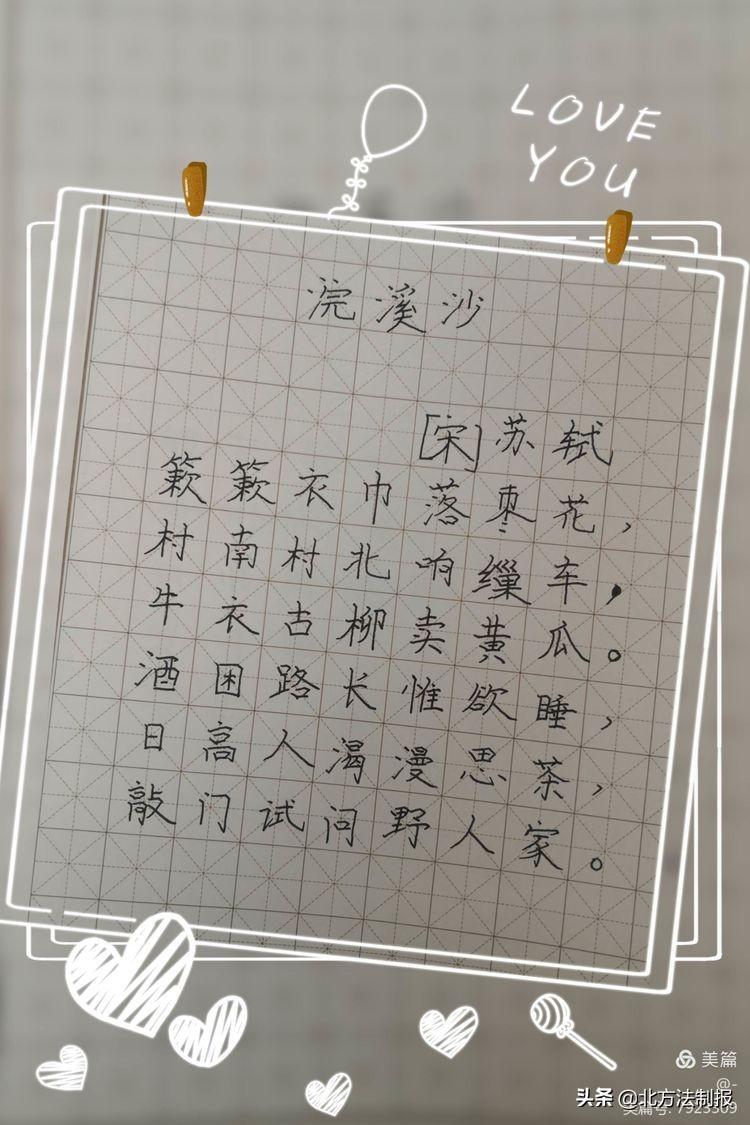 LOVE
YOU
浣溪沙
[宋]苏轼
簌簌衣巾落枣花，
村南村北响缫车，
牛衣古柳卖黄瓜。
酒困路长惟欲睡，
日高人渴漫思茶，
敲门试问野人家。
美篇
@-
美篇号: 7923309
头条 @北方法制报